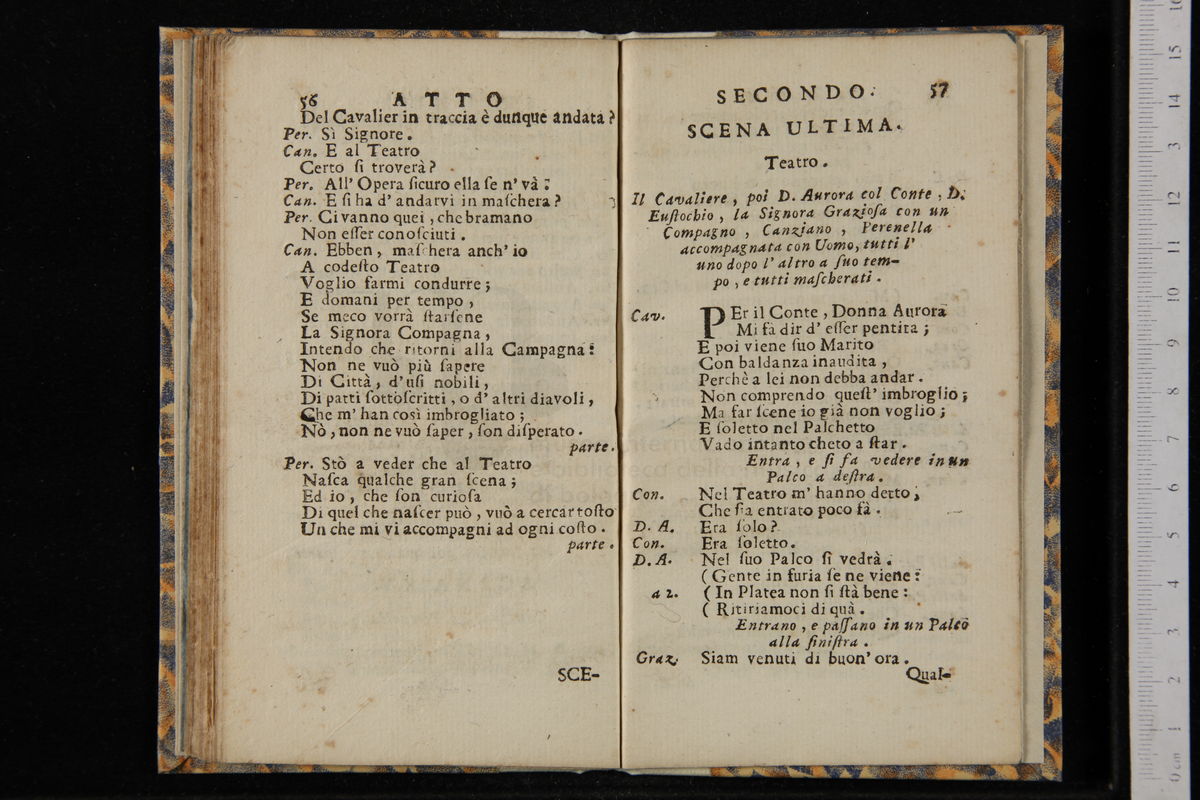 56 ATTO
Del Cavalier in traccia è dunque andata?
Per. Sì Signore.
Can. E al Teatro
Certo ſi troverà?
Per. All' Opera ſicuro ella ſe n' và:
Can. E ſi ha d' andarvi in maſchera?
Per. Ci vanno quei, che bramano
Non eſſer conoſciuti.
Can. Ebben, maſchera anch' io
A codeſto Teatro
Voglio farmi condurre;
E domani per tempo,
Se meco vorrà ſtarſene
La Signora Compagna,
Intendo che ritorni alla Campagna:
Non ne vuò più ſapere
Di Città, d' uſi nobili,
Di patti ſottoſcritti, o d' altri diavoli,
Che m' han così imbrogliato;
Nò, non ne vuò ſaper, ſon diſperato.
parte.
Per. Stò a veder che al Teatro
Naſca qualche gran ſcena;
Ed io, che ſon curioſa
Di quel che naſcer può, vuò a cercar toſto
Un che mi vi accompagni ad ogni coſto.
parte.
SCE-
SECONDO. 57
SCENA ULTIMA.
Teatro.
Il Cavaliere, poi D. Aurora col Conte, D.
Euſtochio, la Signora Grazioſa con un
Compagno, Canziano, Perenella
accompagnata con Uomo, tutti l'
uno dopo l' altro a ſuo tem-
po, e tutti maſcherati.
Cav. PEr il Conte, Donna Aurora
Mi fà dir d' eſſer pentita;
E poi viene ſuo Marito
Con baldanza inaudita,
Perchè a lei non debba andar.
Non comprendo queſt' imbroglio;
Ma far ſcene io già non voglio;
E ſoletto nel Palchetto
Vado intanto cheto a ſtar.
Entra, e ſi fa vedere in un
Palco a deſtra.
Con. Nel Teatro m' hanno detto,
Che ſia entrato poco fà.
D. A. Era ſolo?
Con. Era ſoletto.
D. A. Nel ſuo Palco ſi vedrà.
(Gente in furia ſe ne viene:
a 2. (In Platea non ſi ſtà bene:
( Ritiriamoci di quà.
Entrano, e paſſano in un Palco
alla ſiniſtra.
Graz. Siam venuti di buon' ora.
Qual-